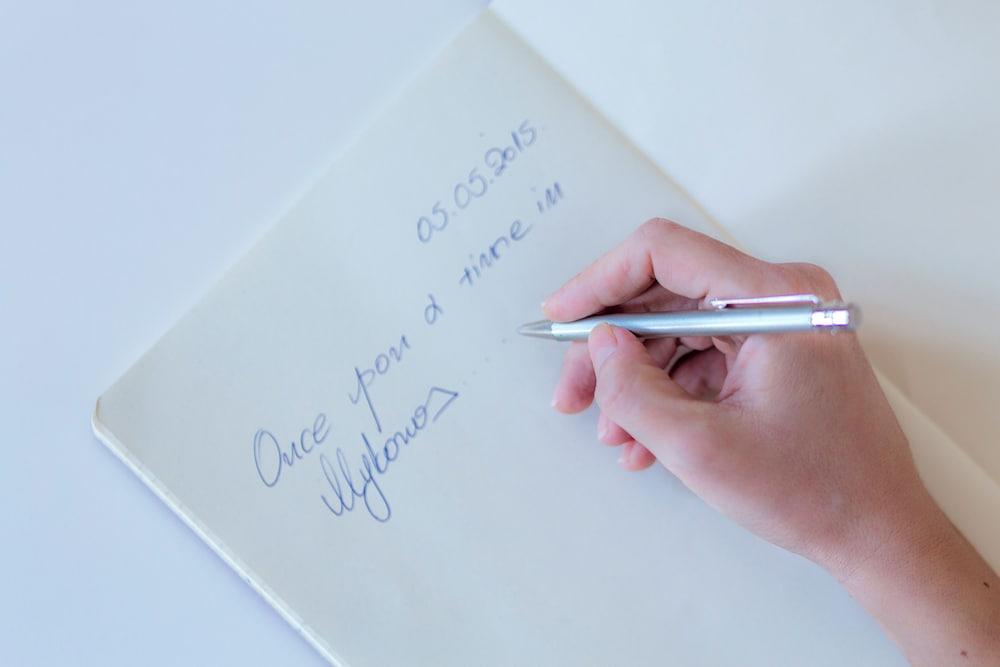 05.05.2015.
Once pon a time in
Mykonos....